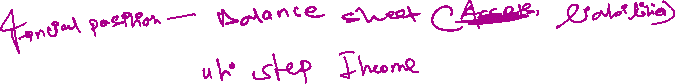 Fancial position — Balance sheet (Assets, liabilities)
step Income